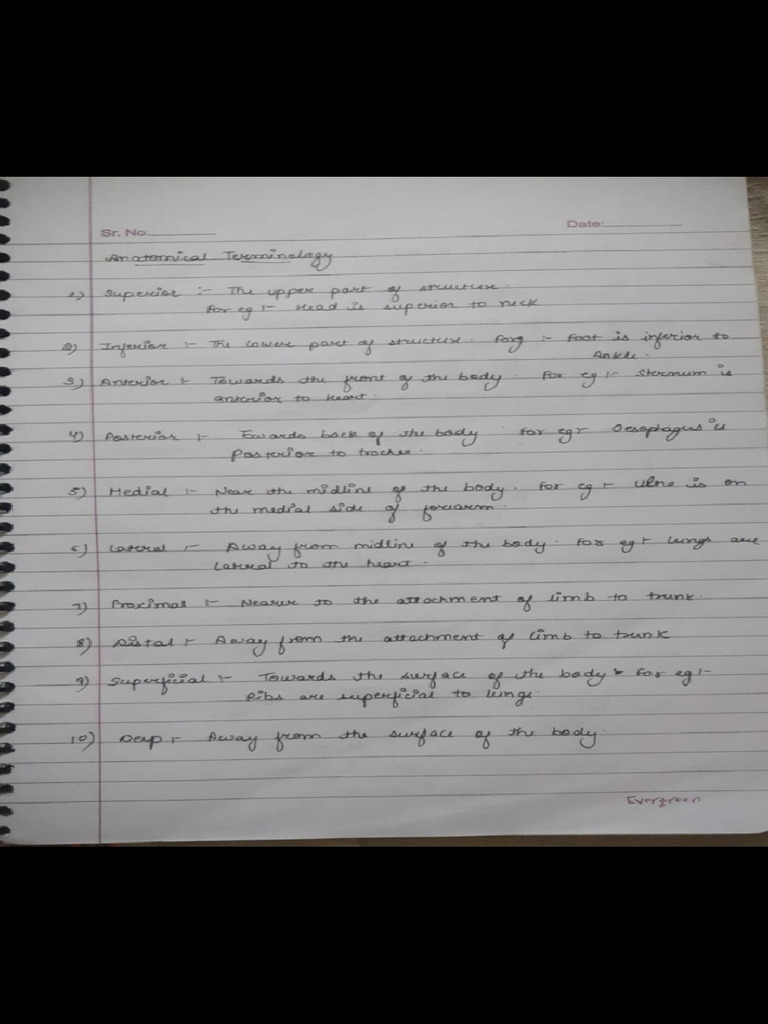 Sr. No.
Date:
Anatomical Terminology
1) Superior :- The upper part of structure.
for eg :- Head is superior to neck
2) Inferior :- The lower part of structure. forg :- Foot is inferior to
Ankle.
3) Anterior :- Towards the front of the body. For eg :- Sternum is
anterior to heart.
4) Posterior :- Towards back of the body. For eg :- Oesophagus is
posterior to trachea.
5) Medial :- Near the midline of the body. For eg :- Ulna is on
the medial side of forearm.
6) Lateral :- Away from midline of the body. For eg :- lungs are
lateral to the heart.
7) Proximal :- Nearer to the attachment of limb to trunk.
8) Distal :- Away from the attachment of limb to trunk
9) Superficial :- Towards the surface of the body. For eg :-
Ribs are superficial to lungs.
10) Deep :- Away from the surface of the body.
Evergreen